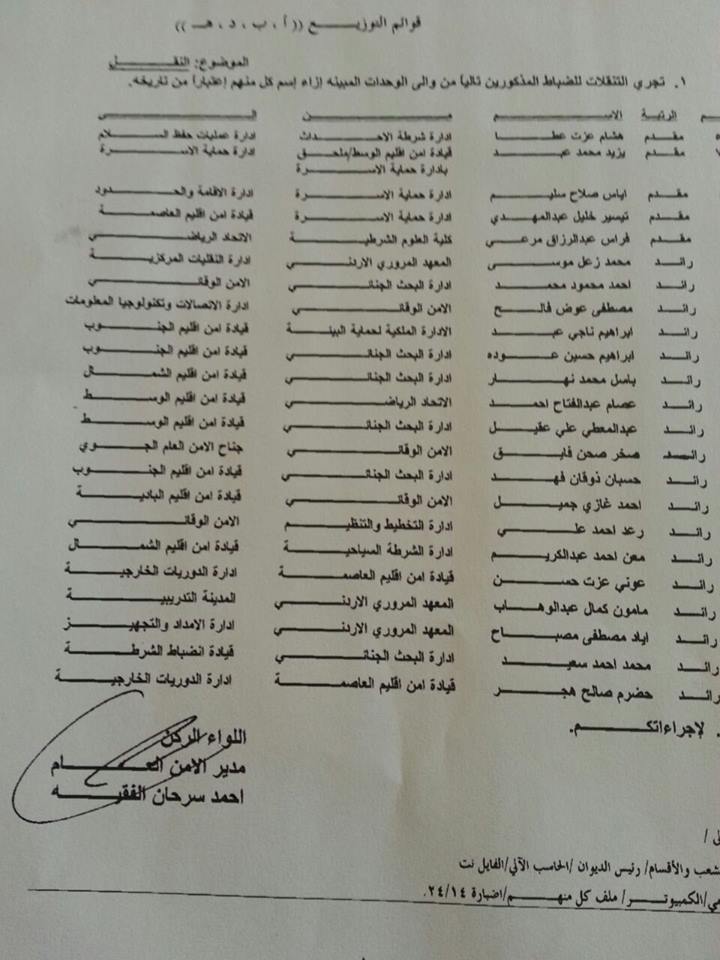 قوائم التوزيـــع ((أ ، ب ، د ، هـ))
الموضوع: النقـــل
١. تجري التنقلات للضباط المذكورين تالياً من والى الوحدات المبينه إزاء إسم كل منهم إعتباراً من تاريخه.
الرتبة الاســـم مـــن الـــى
مقـدم هشام عزت عطـا ادارة شرطة الاحـداث ادارة عمليات حفظ السـلام
مقـدم يزيد محمد عبـد قيادة امن اقليم الوسط/ملحق ادارة حماية الاسـرة
بإدارة حماية الاسـرة
مقـدم اياس صلاح سليـم ادارة حماية الاسـرة ادارة الاقامة والحـدود
مقـدم تيسير خليل عبدالمهـدي ادارة حماية الاسـرة قيادة امن اقليم العاصمـة
مقـدم فراس عبدالرزاق مرعـي كلية العلوم الشرطيـة الاتحاد الرياضـي
رائـد محمد زعل موسـى المعهد المروري الاردنـي ادارة النقليات المركزيـة
رائـد احمد محمود محمـد ادارة البحث الجنائـي الامن الوقائـي
رائـد مصطفى عوض فالـح الامن الوقائـي ادارة الاتصالات وتكنولوجيا المعلومات
رائـد ابراهيم ناجي عبـد الادارة الملكية لحماية البيئـة قيادة امن اقليم الجنـوب
رائـد ابراهيم حسين عـوده ادارة البحث الجنائـي قيادة امن اقليم الجنـوب
رائـد باسل محمد نهـار ادارة البحث الجنائـي قيادة امن اقليم الشمـال
رائـد عصام عبدالفتاح احمـد الاتحاد الرياضـي قيادة امن اقليم الوسـط
رائـد عبدالمعطي علي عقيـل ادارة البحث الجنائـي قيادة امن اقليم الوسـط
رائـد صخر صحن فايـق الامن الوقائـي جناح الامن العام الجـوي
رائـد حسبان ذوقان فهـد ادارة البحث الجنائـي قيادة امن اقليم الجنـوب
رائـد احمد غازي جميـل الامن الوقائـي قيادة امن اقليم الباديـة
رائـد رعد احمد علـي ادارة التخطيط والتنظيـم الامن الوقائـي
رائـد معن احمد عبدالكريـم ادارة الشرطة السياحيـة قيادة امن اقليم الشمـال
رائـد عوني عزت حسـن قيادة امن اقليم العاصمـة ادارة الدوريات الخارجيـة
رائـد مامون كمال عبدالوهـاب المعهد المروري الاردنـي المدينة التدريبيـة
رائـد اياد مصطفى مصبـاح المعهد المروري الاردنـي ادارة الامداد والتجهيـز
رائـد محمد احمد سعيـد ادارة البحث الجنائـي قيادة انضباط الشرطـة
رائـد حضرم صالح هجـر قيادة امن اقليم العاصمـة ادارة الدوريات الخارجيـة
. لإجراءاتكـــم.
اللواء الركن
مدير الامن العـــام
احمد سرحان الفقيـــه
/
والأقسام/ رئيس الديوان /الحاسب الآلي/الفايل نت
/الكمبيوتـر/ ملف كل منهـــم/اضبارة ٢٤/١٤.